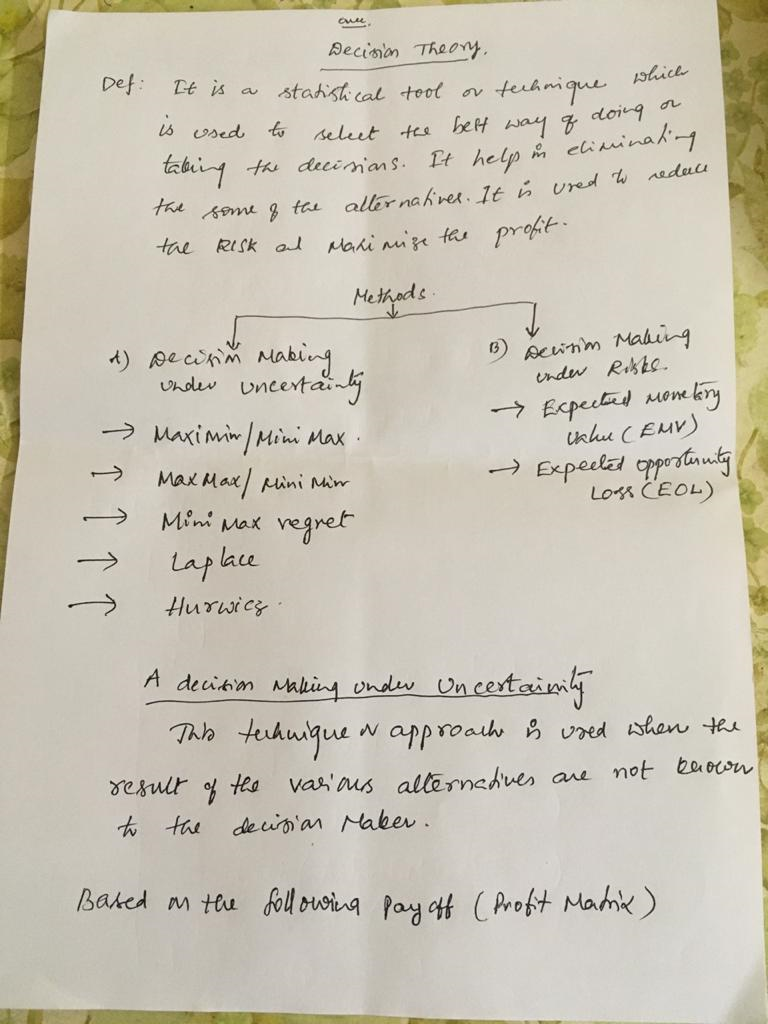 one.
Decision Theory.
Def: It is a statistical tool or technique which
is used to select the best way of doing or
taking the decisions. It help in eliminating
the some of the alternatives. It is used to reduce
the RISK and Maximize the profit.
Methods.
A) Decision Making
under uncertainty
→ Maximin/Mini Max.
→ MaxMax/Mini Min
→ Mini Max regret
→ Laplace
→ Hurwicz.
B) Decision Making
under Risks.
→ Expected Monetary
Value (EMV)
→ Expected opportunity
Loss (EOL)
A decision Making under Uncertainity
This technique or approach is used when the
result of the various alternatives are not known
to the decision Maker.
Based on the following Pay off (Profit Matrix)